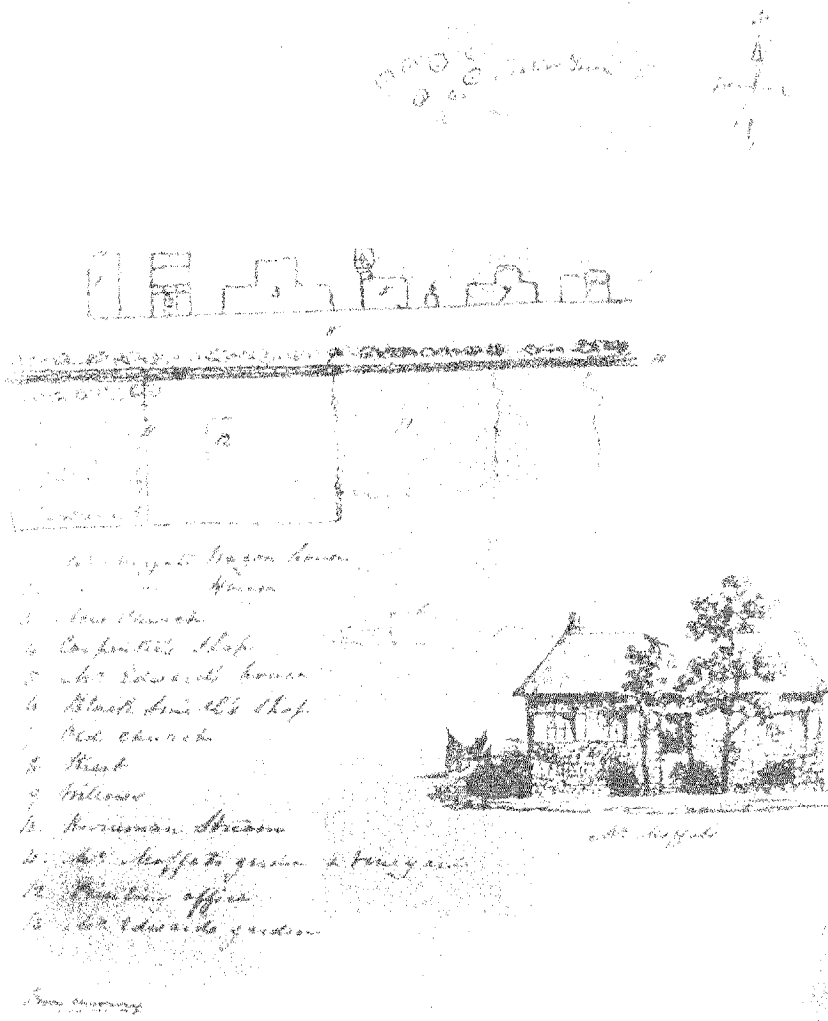 N
Wagon house
2 " " House
3 New Church
4 Carpenter's Shop
5 Mr Edwards house
6 Black Smith's Shop
7 Old Church
8 Street
9 Willows
10. Kuruman Stream
11. Mr Moffats garden & Vineyard
12 Printing office
13 Mr Edwards garden
Mr Moffats
From memory